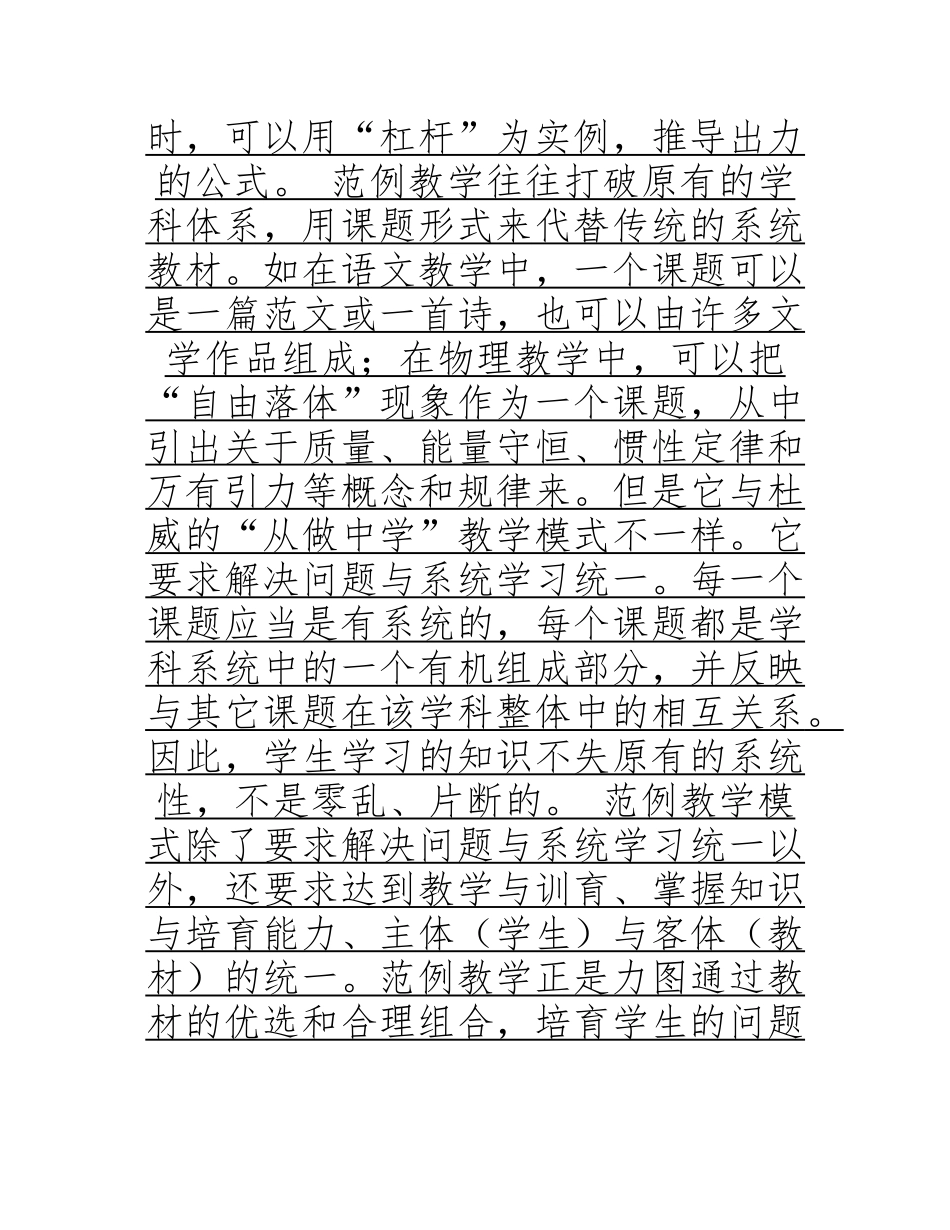 时，可以用“杠杆”为实例，推导出力
的公式。 范例教学往往打破原有的学
科体系，用课题形式来代替传统的系统
教材。如在语文教学中，一个课题可以
是一篇范文或一首诗，也可以由许多文
学作品组成；在物理教学中，可以把
“自由落体”现象作为一个课题，从中
引出关于质量、能量守恒、惯性定律和
万有引力等概念和规律来。但是它与杜
威的“从做中学”教学模式不一样。它
要求解决问题与系统学习统一。每一个
课题应当是有系统的，每个课题都是学
科系统中的一个有机组成部分，并反映
与其它课题在该学科整体中的相互关系。
因此，学生学习的知识不失原有的系统
性，不是零乱、片断的。 范例教学模
式除了要求解决问题与系统学习统一以
外，还要求达到教学与训育、掌握知识
与培育能力、主体（学生）与客体（教
材）的统一。范例教学正是力图通过教
材的优选和合理组合，培育学生的问题